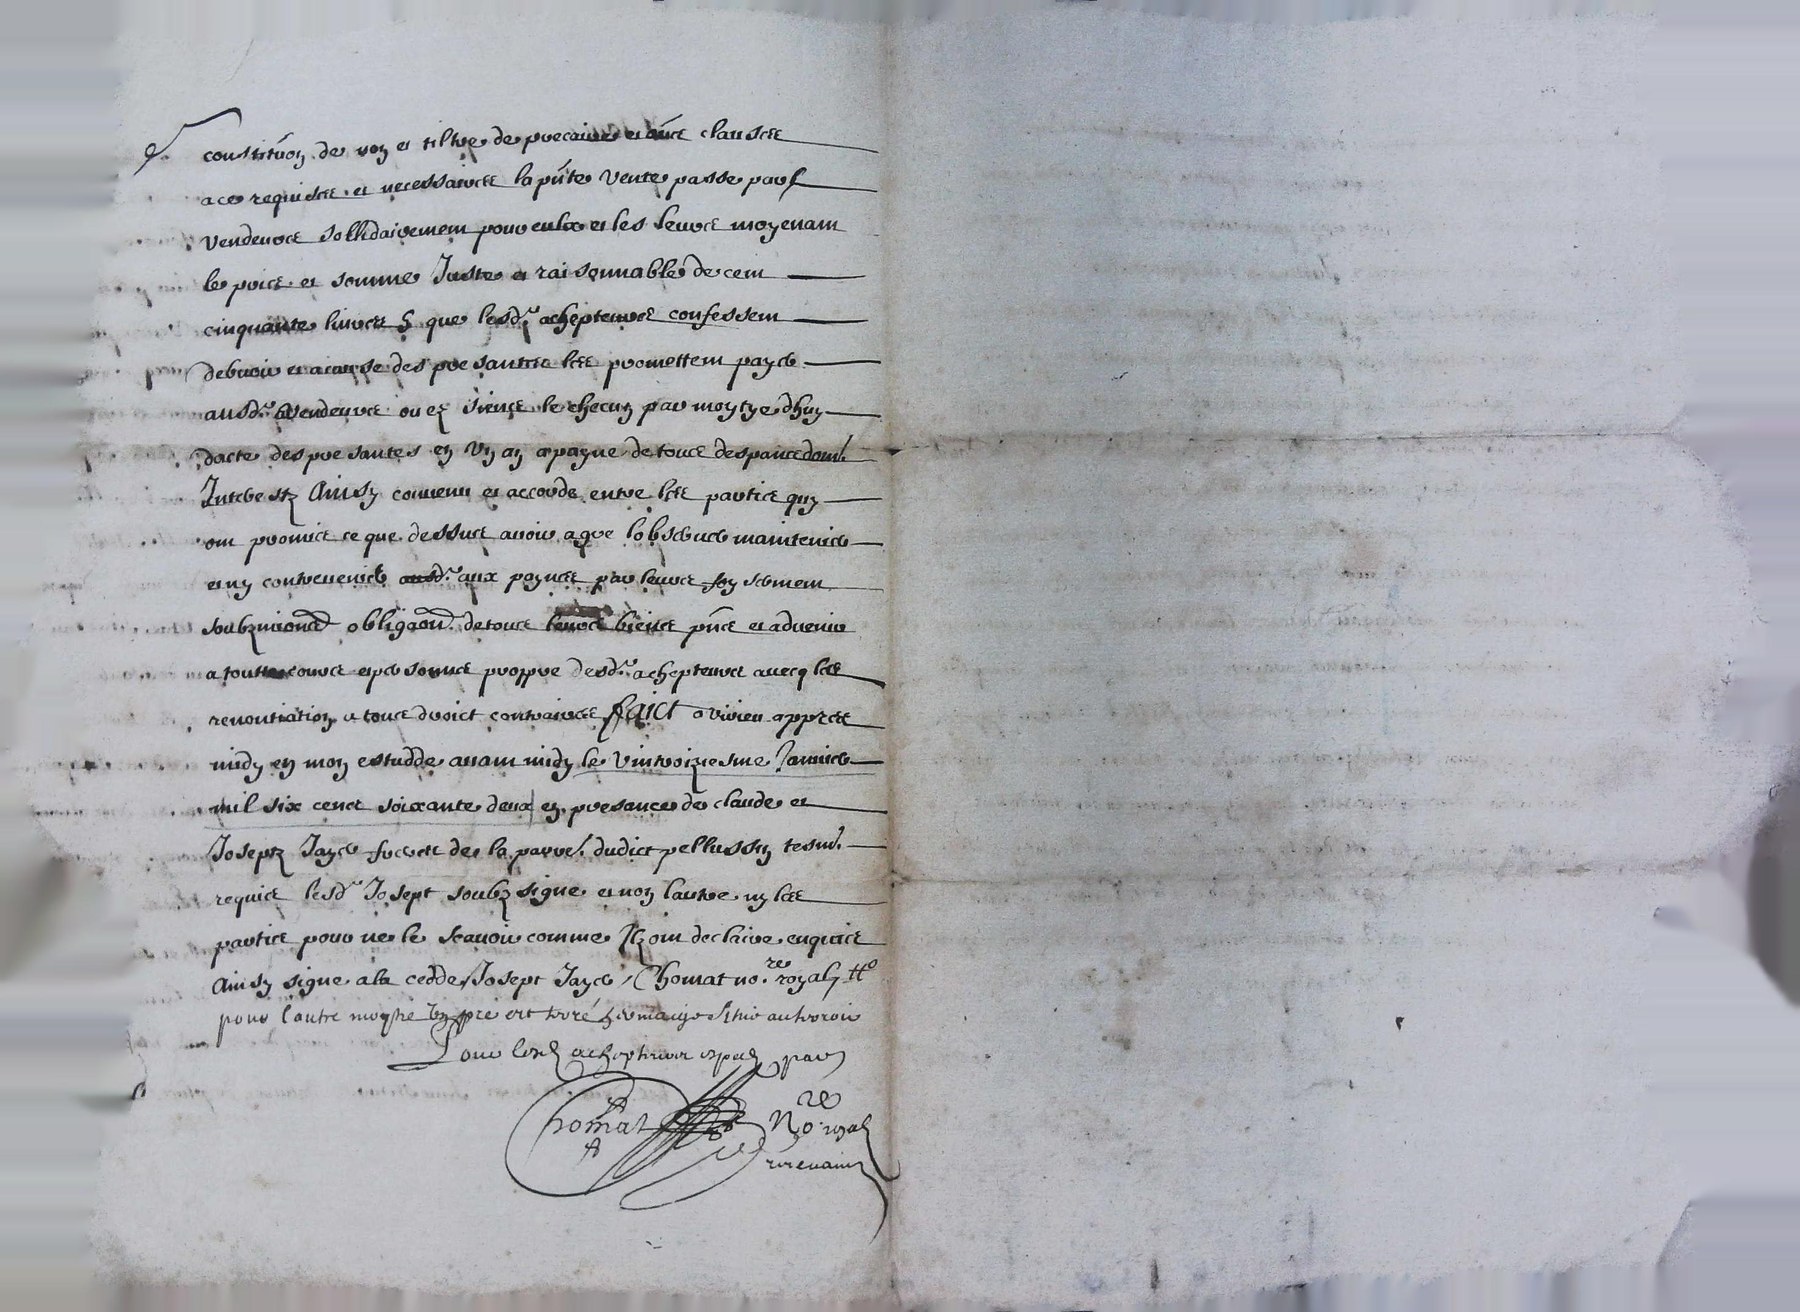 constitũon de non et tiltre de precaire et aũes clauses
a ce requises et necessaires la pñte vente passe par
vendeurs sollidairement pour eulx et les leurs moyenant
le pris et somme Juste et raisonnable de cent
cinquante livres que lesd. achepteurs confessent
debvoir et a cause des presantes les promettent payer
ausd. vendeurs ou es siens le checun par moytye dhuy
dacte des presantes en un an a payne de tous despans dom.
Interestz Ainsy convenu et accorde entre les parties quy
ont promis ce que dessus avoir agre lobserver maintenir
et ny contrevenir aux paynes par leurs foy serment
soubzmions obligaon de tous leurs biens pñs et advenir
a touttes cours et personne propre desd. achepteurs avecq les
renontiation a tous droict contraires faict a vivien appres
midy en mon estudde avant midy le vintroiziesme Janvier
mil six cens soixante deux en presance de claude et
Josept Jayer freres de la parr. dudict pellussin tesm.
requis lesd. Josept soubz signe et non lautre ny les
parties pour ne le scavoir comme Ilz ont declaire enquis
Ainsy signe a la cedde Josept Jayer Thomat no.re royal
pour l'autre
Pour lesd. achepteurs exped. par
Thomat No.re royal